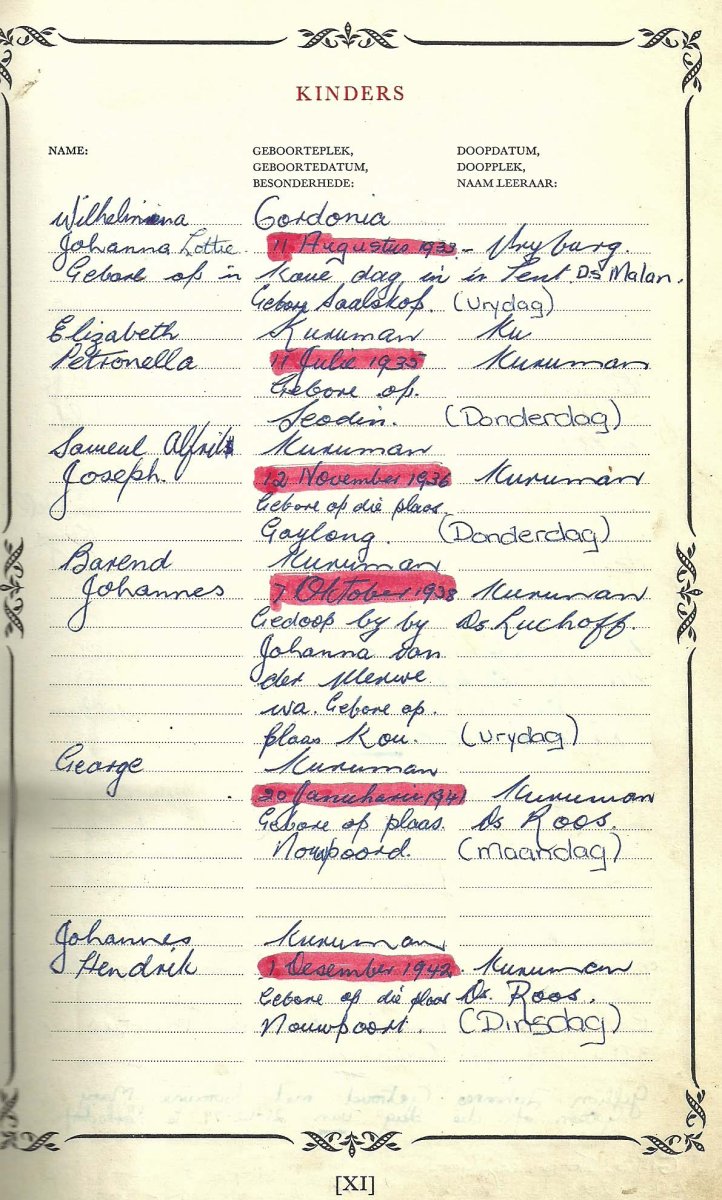 KINDERS
NAME: GEBOORTEPLEK, DOOPDATUM,
GEBOORTEDATUM, DOOPPLEK,
BESONDERHEDE: NAAM LEERAAR:
Wilhelmina Gordonia
Johanna Lottie 11 Augustus 1933 - Vryburg.
Gebore op 'n koue dag in 'n Tent. Ds Malan.
Gebore Saalskop. (Vrydag)
Elizabeth Kuruman Ku
Petronella 11 Julie 1935 Kuruman
Gebore op.
Seodin. (Donderdag)
Sameul Kuruman
Joseph. 12 November 1936 Kuruman
Gebore op die plaas
Gaylong. (Donderdag)
Barend Kuruman
Johannes 7 Oktober 1938 Kuruman
Gedoop by by Ds Luchoff.
Johanna van
der Merwe
wa. Gebore op.
plaas Kou. (Vrydag)
George Kuruman
20 Januharie 1941 Kuruman
Gebore op plaas. Ds Roos.
Nouwpoord. (maandag)
Johannes Kuruman
Hendrik 1 Desember 1942. Kuruman
Gebore op die plaas Ds. Roos.
Nouwpoort. (Dinsdag)
[XI]